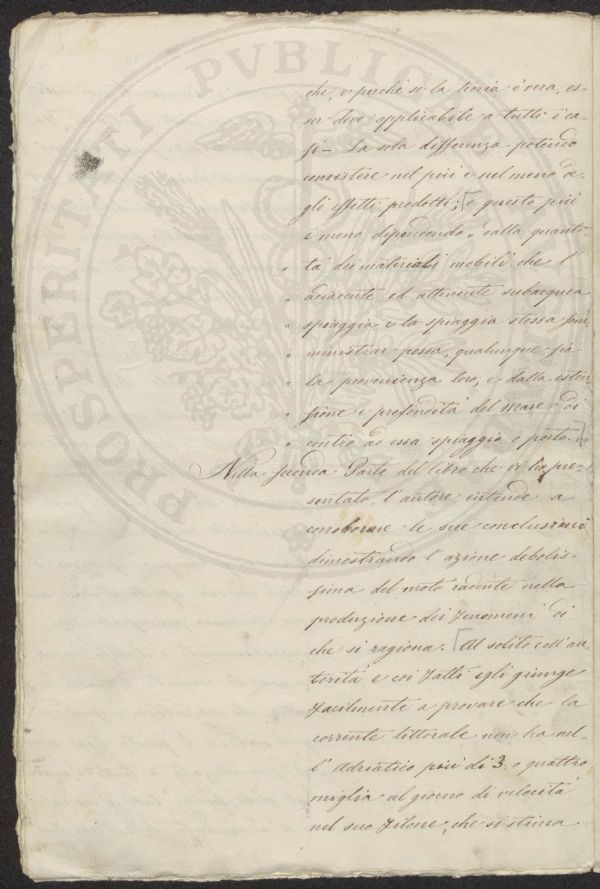 PROSPERITATI PVBLICAE
che, e perchè se la teoria è vera, es-
ser deve applicabile a tutti i ca-
si — La sola differenza potendo
consistere nel più e nel meno de-
gli effetti prodotti; e questo più
e meno dipendendo „ dalla quanti-
„ tà dei materiali mobili che l'
„ adiacente ed attinente subacquea
„ spiaggia e la spiaggia stessa som-
„ ministrar possa, qualunque sia
„ la provenienza loro, e dalla esten-
„ sione e profondità del mare di
„ contro ad essa spiaggia o porto.
Nella seconda Parte del libro che vi ho pre-
sentato l'autore intende a
corroborare le sue conclusioni
dimostrando l'azione debolis-
sima del moto radente nella
produzione dei fenomeni di
che si ragiona. Al solito coll'au
torità e coi fatti egli giunge
facilmente a provare che la
corrente littorale non ha nel-
l'Adriatico più di 3 o quattro
miglia al giorno di velocità
nel suo filone, che si stima